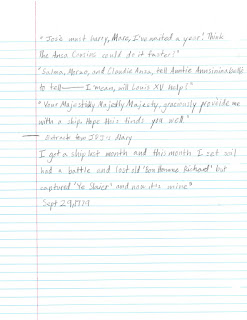 "José must hurry, Marc, I've waited a year! Think
the Ansa Cousins could do it faster!"
"Salma, Marco, and Claudia Ansa, tell Auntie
to tell — I mean, will Louis XV help!"
"Your Majesty, Majedly Majesty, graciously provide me
with a ship. Hope this finds you well"
— Extract from JPJ's Diary
I got a ship last month and this month I set sail
had a battle and lost old 'Bon Homme Richard' but
captured 'Ye Slavier' and now it's mine"
Sept 29, 1779